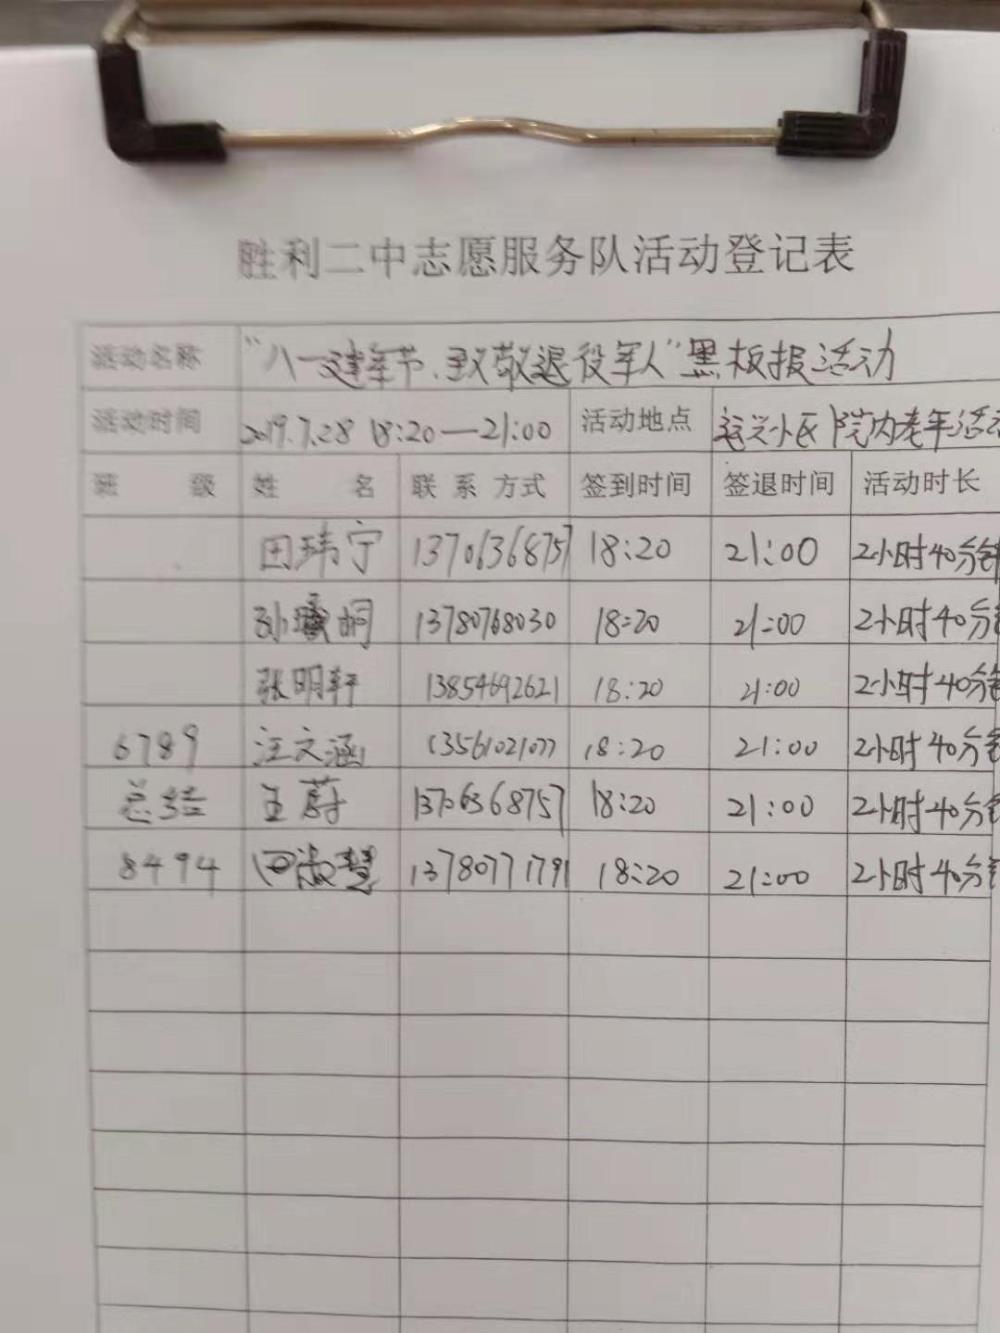 胜利二中志愿服务队活动登记表
活动名称 "八一建军节、致敬退役军人"黑板报活动
活动时间 2019.7.28 18:20—21:00 活动地点 运兴小区院内老年活动
班 级 姓 名 联系方式 签到时间 签退时间 活动时长
田玮宁 13706368757 18:20 21:00 2小时40分钟
孙曦桐 13780768030 18:20 21:00 2小时40分钟
张明轩 13854692621 18:20 21:00 2小时40分钟
6789 汪文涵 13561021077 18:20 21:00 2小时40分钟
总结 王蔚 13706368757 18:20 21:00 2小时40分钟
8494 田淑慧 13780771791 18:20 21:00 2小时40分钟